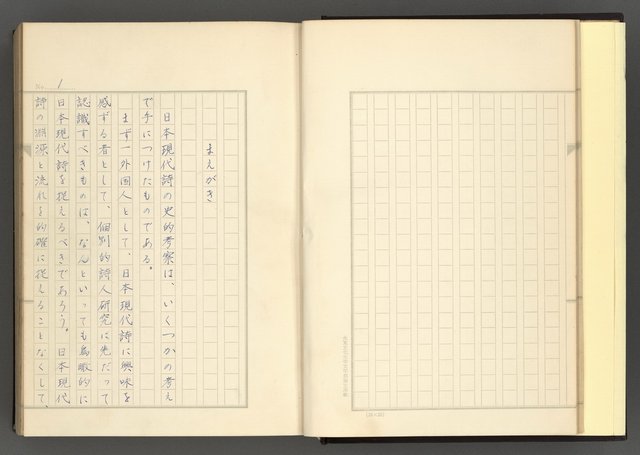 No. 1
まえがき
日本現代詩の史的考察は、いくつかの考え
で手につけたものである。
まず一外国人として、日本現代詩に興味を
感ずる者として、個別的詩人研究に先だって
認識すべきものは、なんといっても鳥瞰的に
日本現代詩を捉えるべきであろう。日本現代
詩の淵源と流れを的確に捉えることなくして、